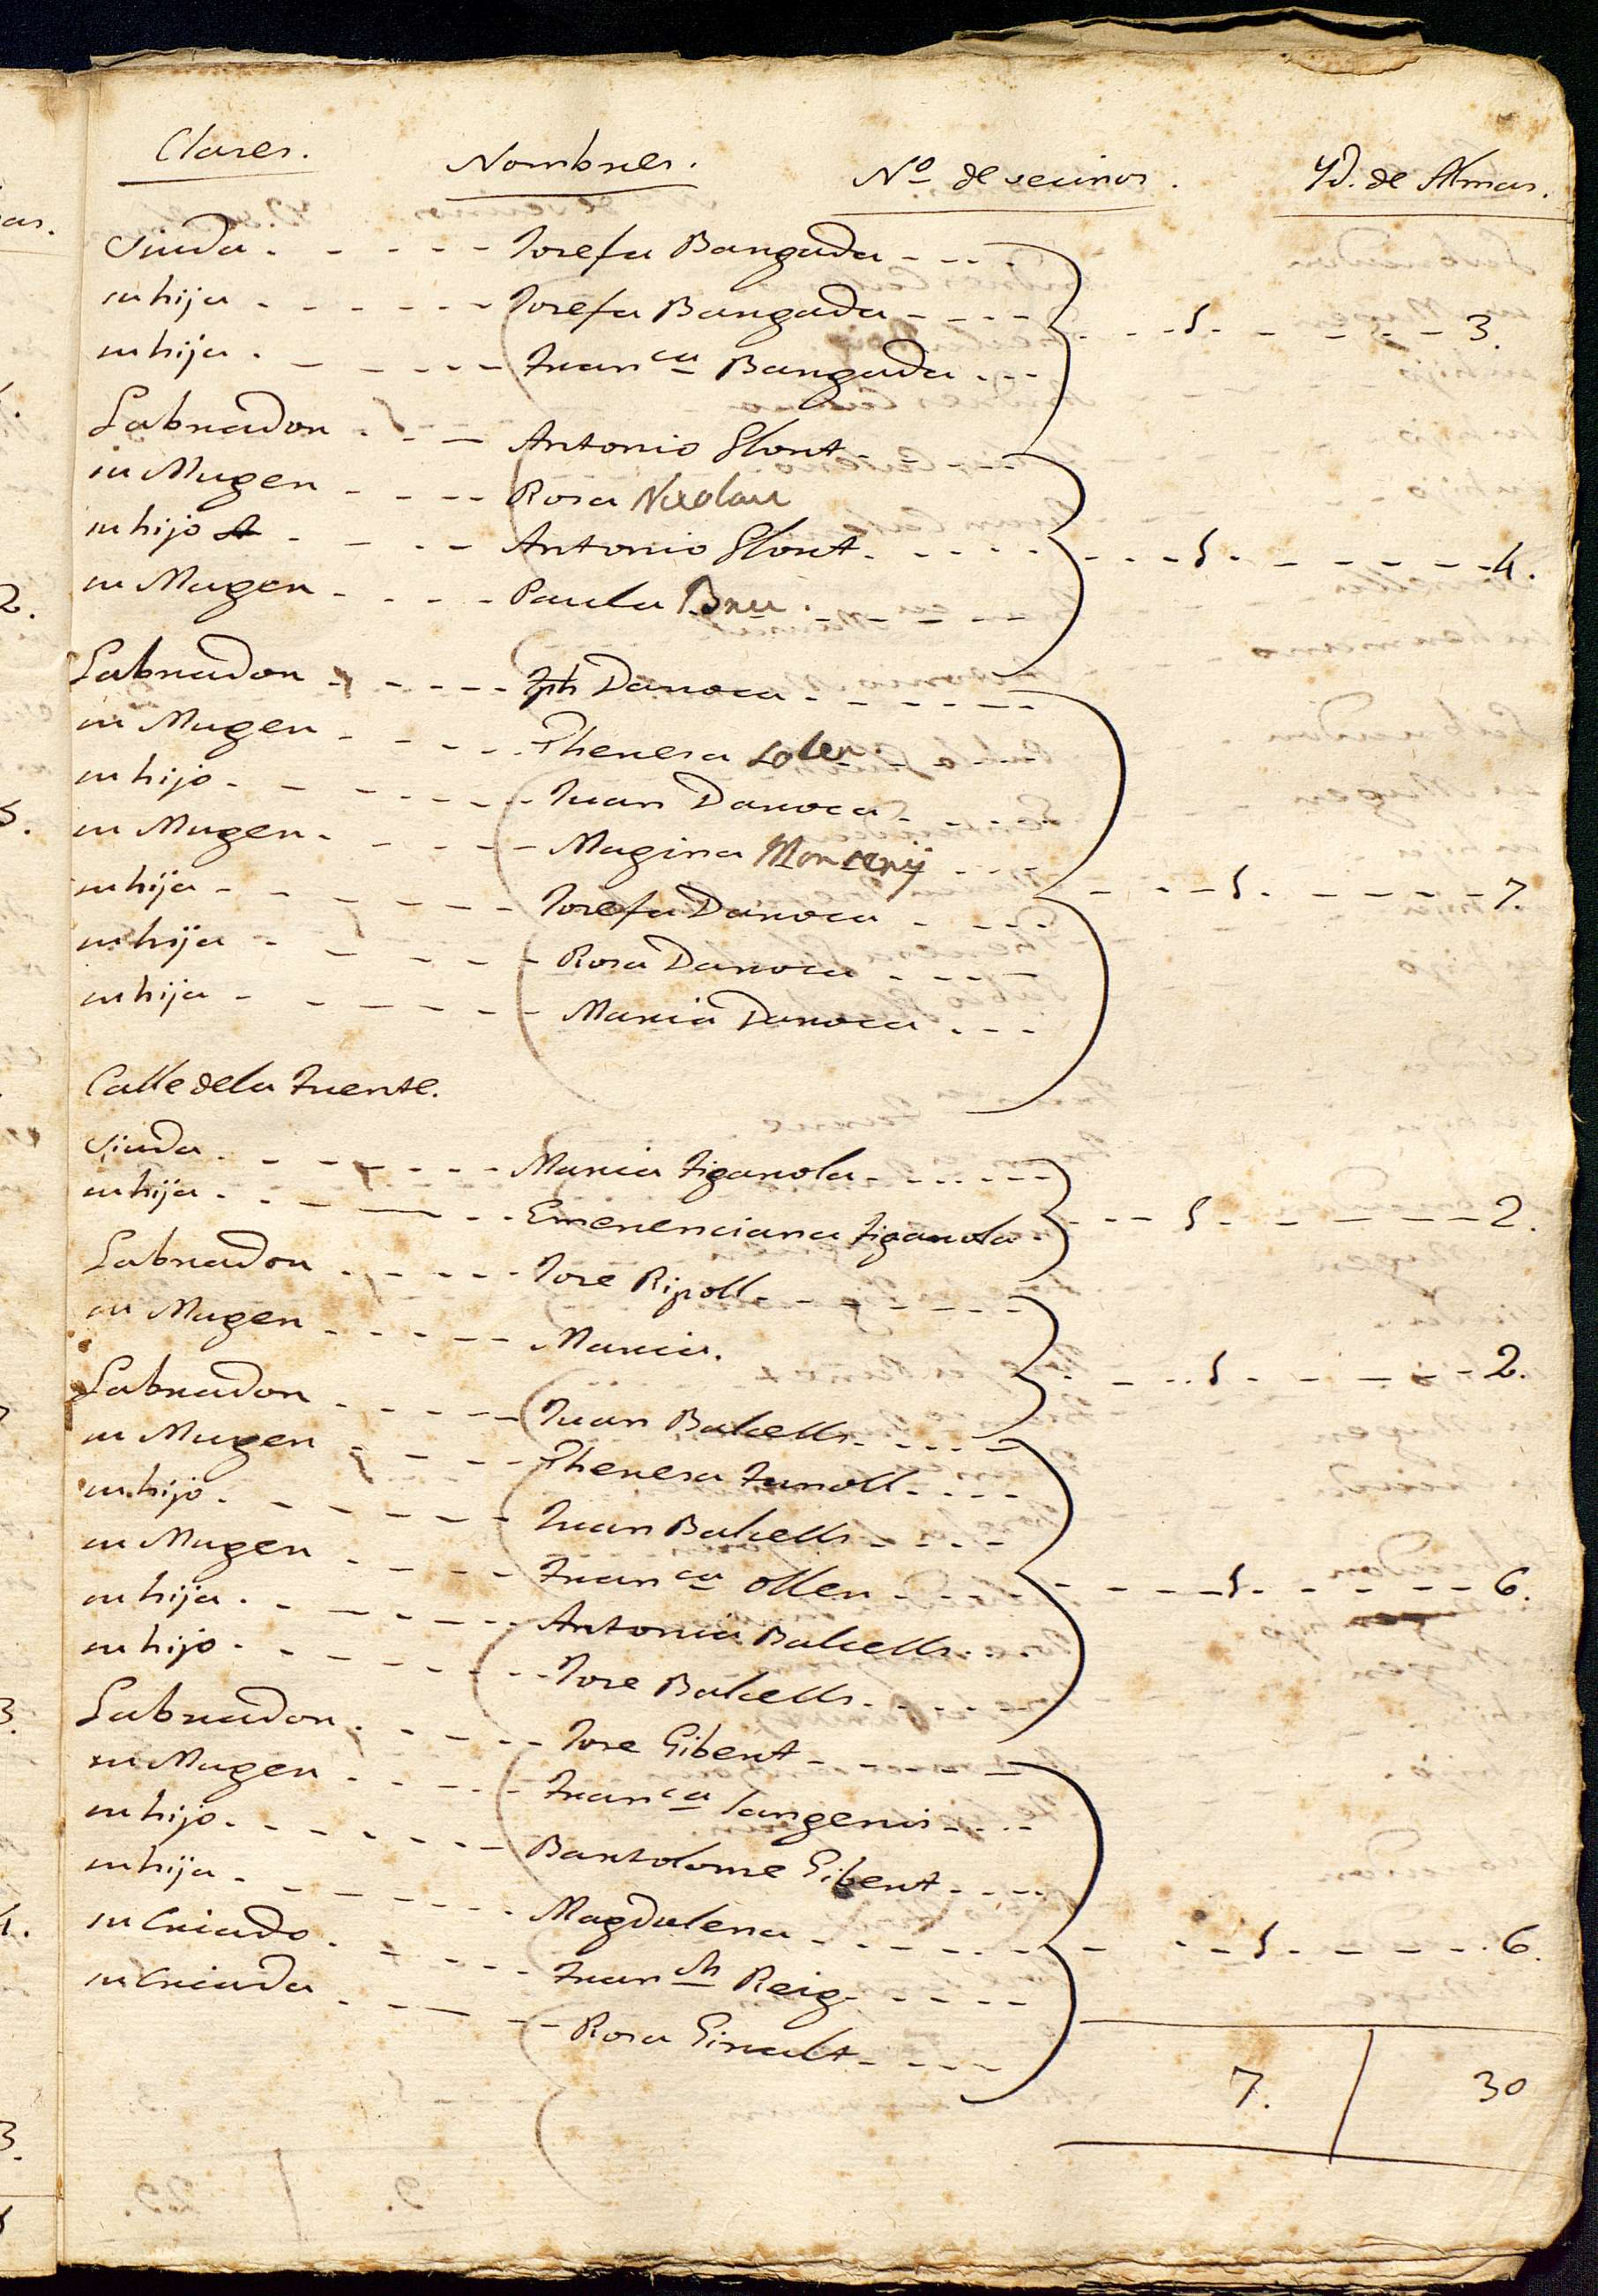 Clases. Nombres. Nº de vecinos. Yd. de Almas.
Viuda - - - - - Josefa Bargada - - - -
su hija - - - - - - Josefa Bargada - - - - - - - 1 - - - - - 3.
su hija - - - - - - Franca Bargada - - -
Labrador - - - Antonio Llort - - - -
su Muger - - - - Rosa Nicolau
su hijo - - - - Antonio Llort - - - - - - - - 1 - - - - - - 4.
su Muger - - - - Paula Bru - - - - -
Labrador - - - - - Jph Daroca - - - - - -
su Muger - - - - Theresa Soler - - - -
su hijo - - - - - - Juan Daroca - - - -
su Muger - - - - - Magina Monserrý - - - -
su hija - - - - - - Josefa Daroca - - - - - - - 1 - - - - - - 7.
su hija - - - - - - Rosa Daroca - - - -
su hija - - - - - - Maria Daroca - - -
Calle de la Fuente.
Viuda - - - - - - - Maria Figarola - - - - - -
su hija - - - - - - Emerenciana Figarola - - - - 1 - - - - - - 2.
Labrador - - - - - Jose Ripoll - - - - - -
su Muger - - - - - Maria. - - - 1 - - - - - 2.
Labrador - - - - - Juan Balcells - - - - -
su Muger - - - - Theresa Fanoll - - - -
su hijo - - - - - - Juan Balcells - - - -
su Muger - - - - Franca Oller - - - - - - - - 1 - - - - - 6.
su hija - - - - - - Antonia Balcells - -
su hijo - - - - - - Jose Balcells - - - -
Labrador - - - - - Jose Gibert - - - - - -
su Muger - - - - - Franca Sangenis - - - -
su hijo - - - - - - Bartolome Gibert - - - -
su hija - - - - - - Magdalena - - - - - - - - - 1 - - - - - 6.
su Criado - - - - - Franch Reig - - - - -
su Criada - - - - Rosa Giralt - - - -
7. 30